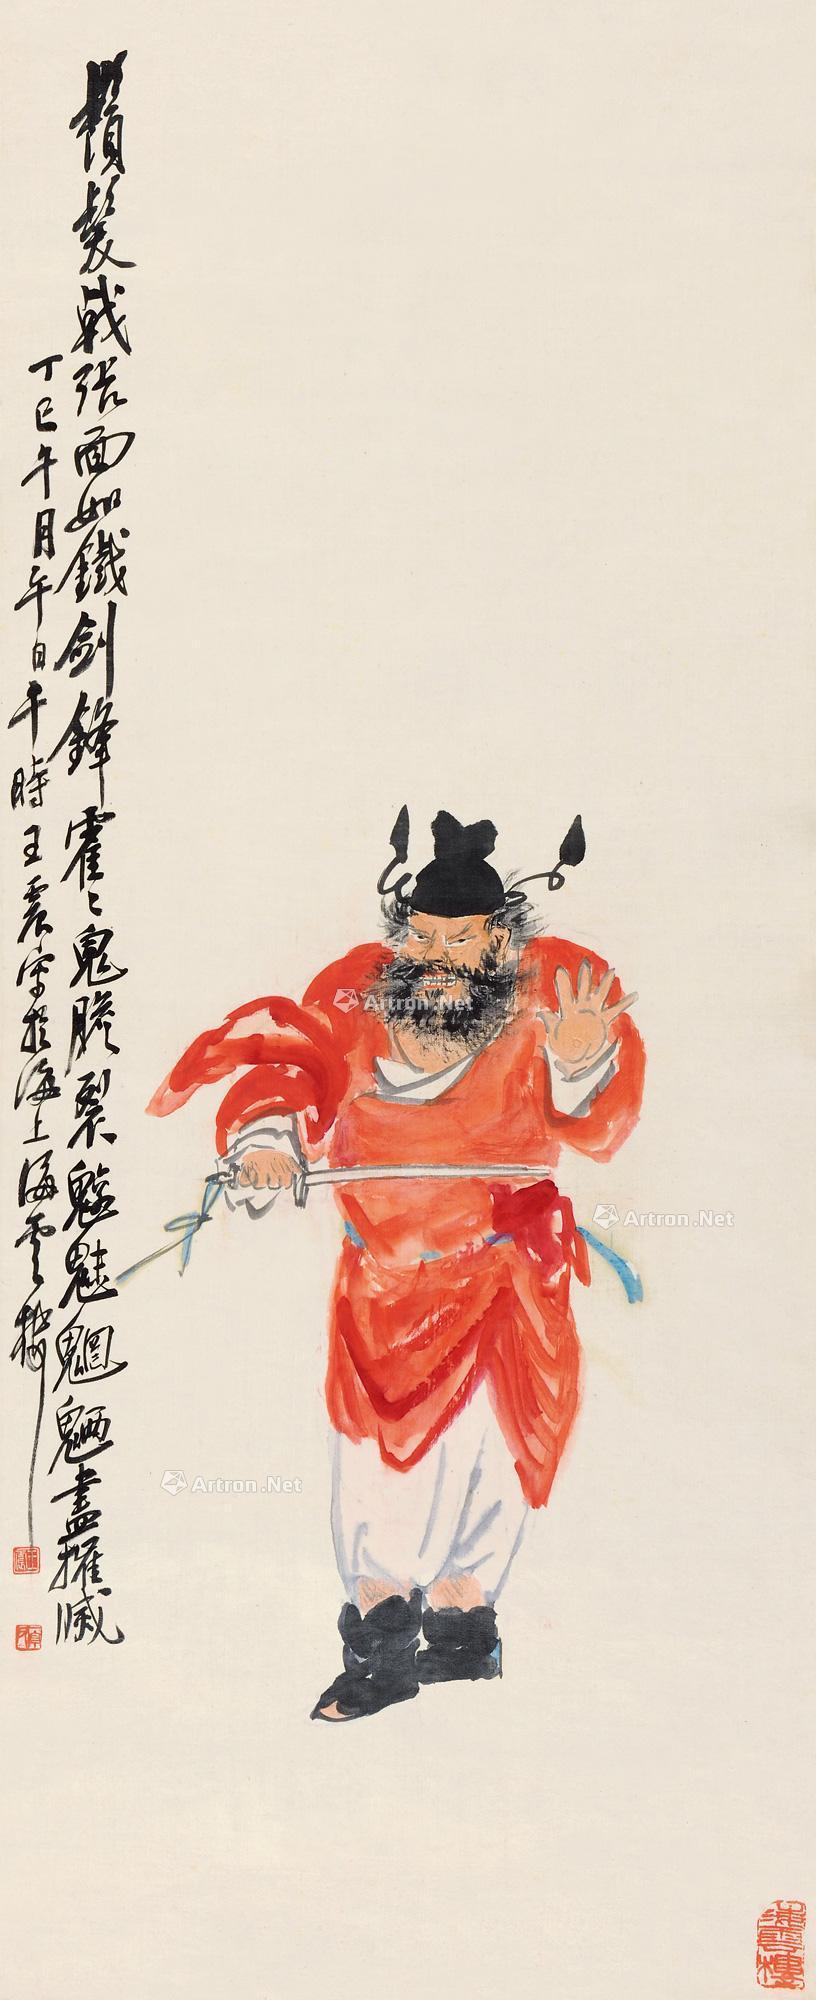 鬚髮戟張面如鐵劍鋒霍〻鬼膽裂魑魅魍魎盡摧滅
丁巳午月午日午時王震寫於海上海雲樓
Artron.Net
Artron.Net
Artron.Net
海雲樓